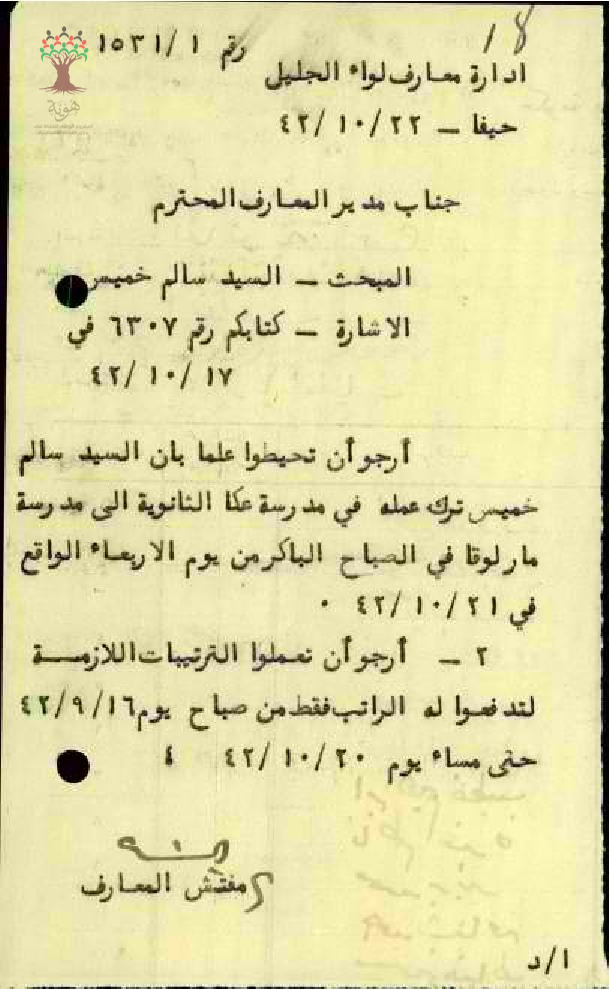 ١٨
رقم ١ /١٥٣١
ادارة معارف لواء الجليل
حيفا – ٢٢/ ١٠ /٤٢
هوية
جناب مدير المعارف المحترم
المبحث – السيد سالم خميس
الاشارة – كتابكم رقم ٦٣٠٧ في
١٧ /١٠ /٤٢
أرجو أن تحيطوا علما بان السيد سالم
خميس ترك عمله في مدرسة عكا الثانوية الى مدرسة
مار لوقا في الصباح الباكر من يوم الاربعاء الواقع
في ٢١ /١٠ /٤٢ ٠
٢ – أرجو أن تعملوا الترتيبات اللازمة
لتدفعوا له الراتب فقط من صباح يوم ١٦/ ٩ /٤٢
حتى مساء يوم ٢٠ /١٠ /٤٢
مفتش المعارف
ا/د